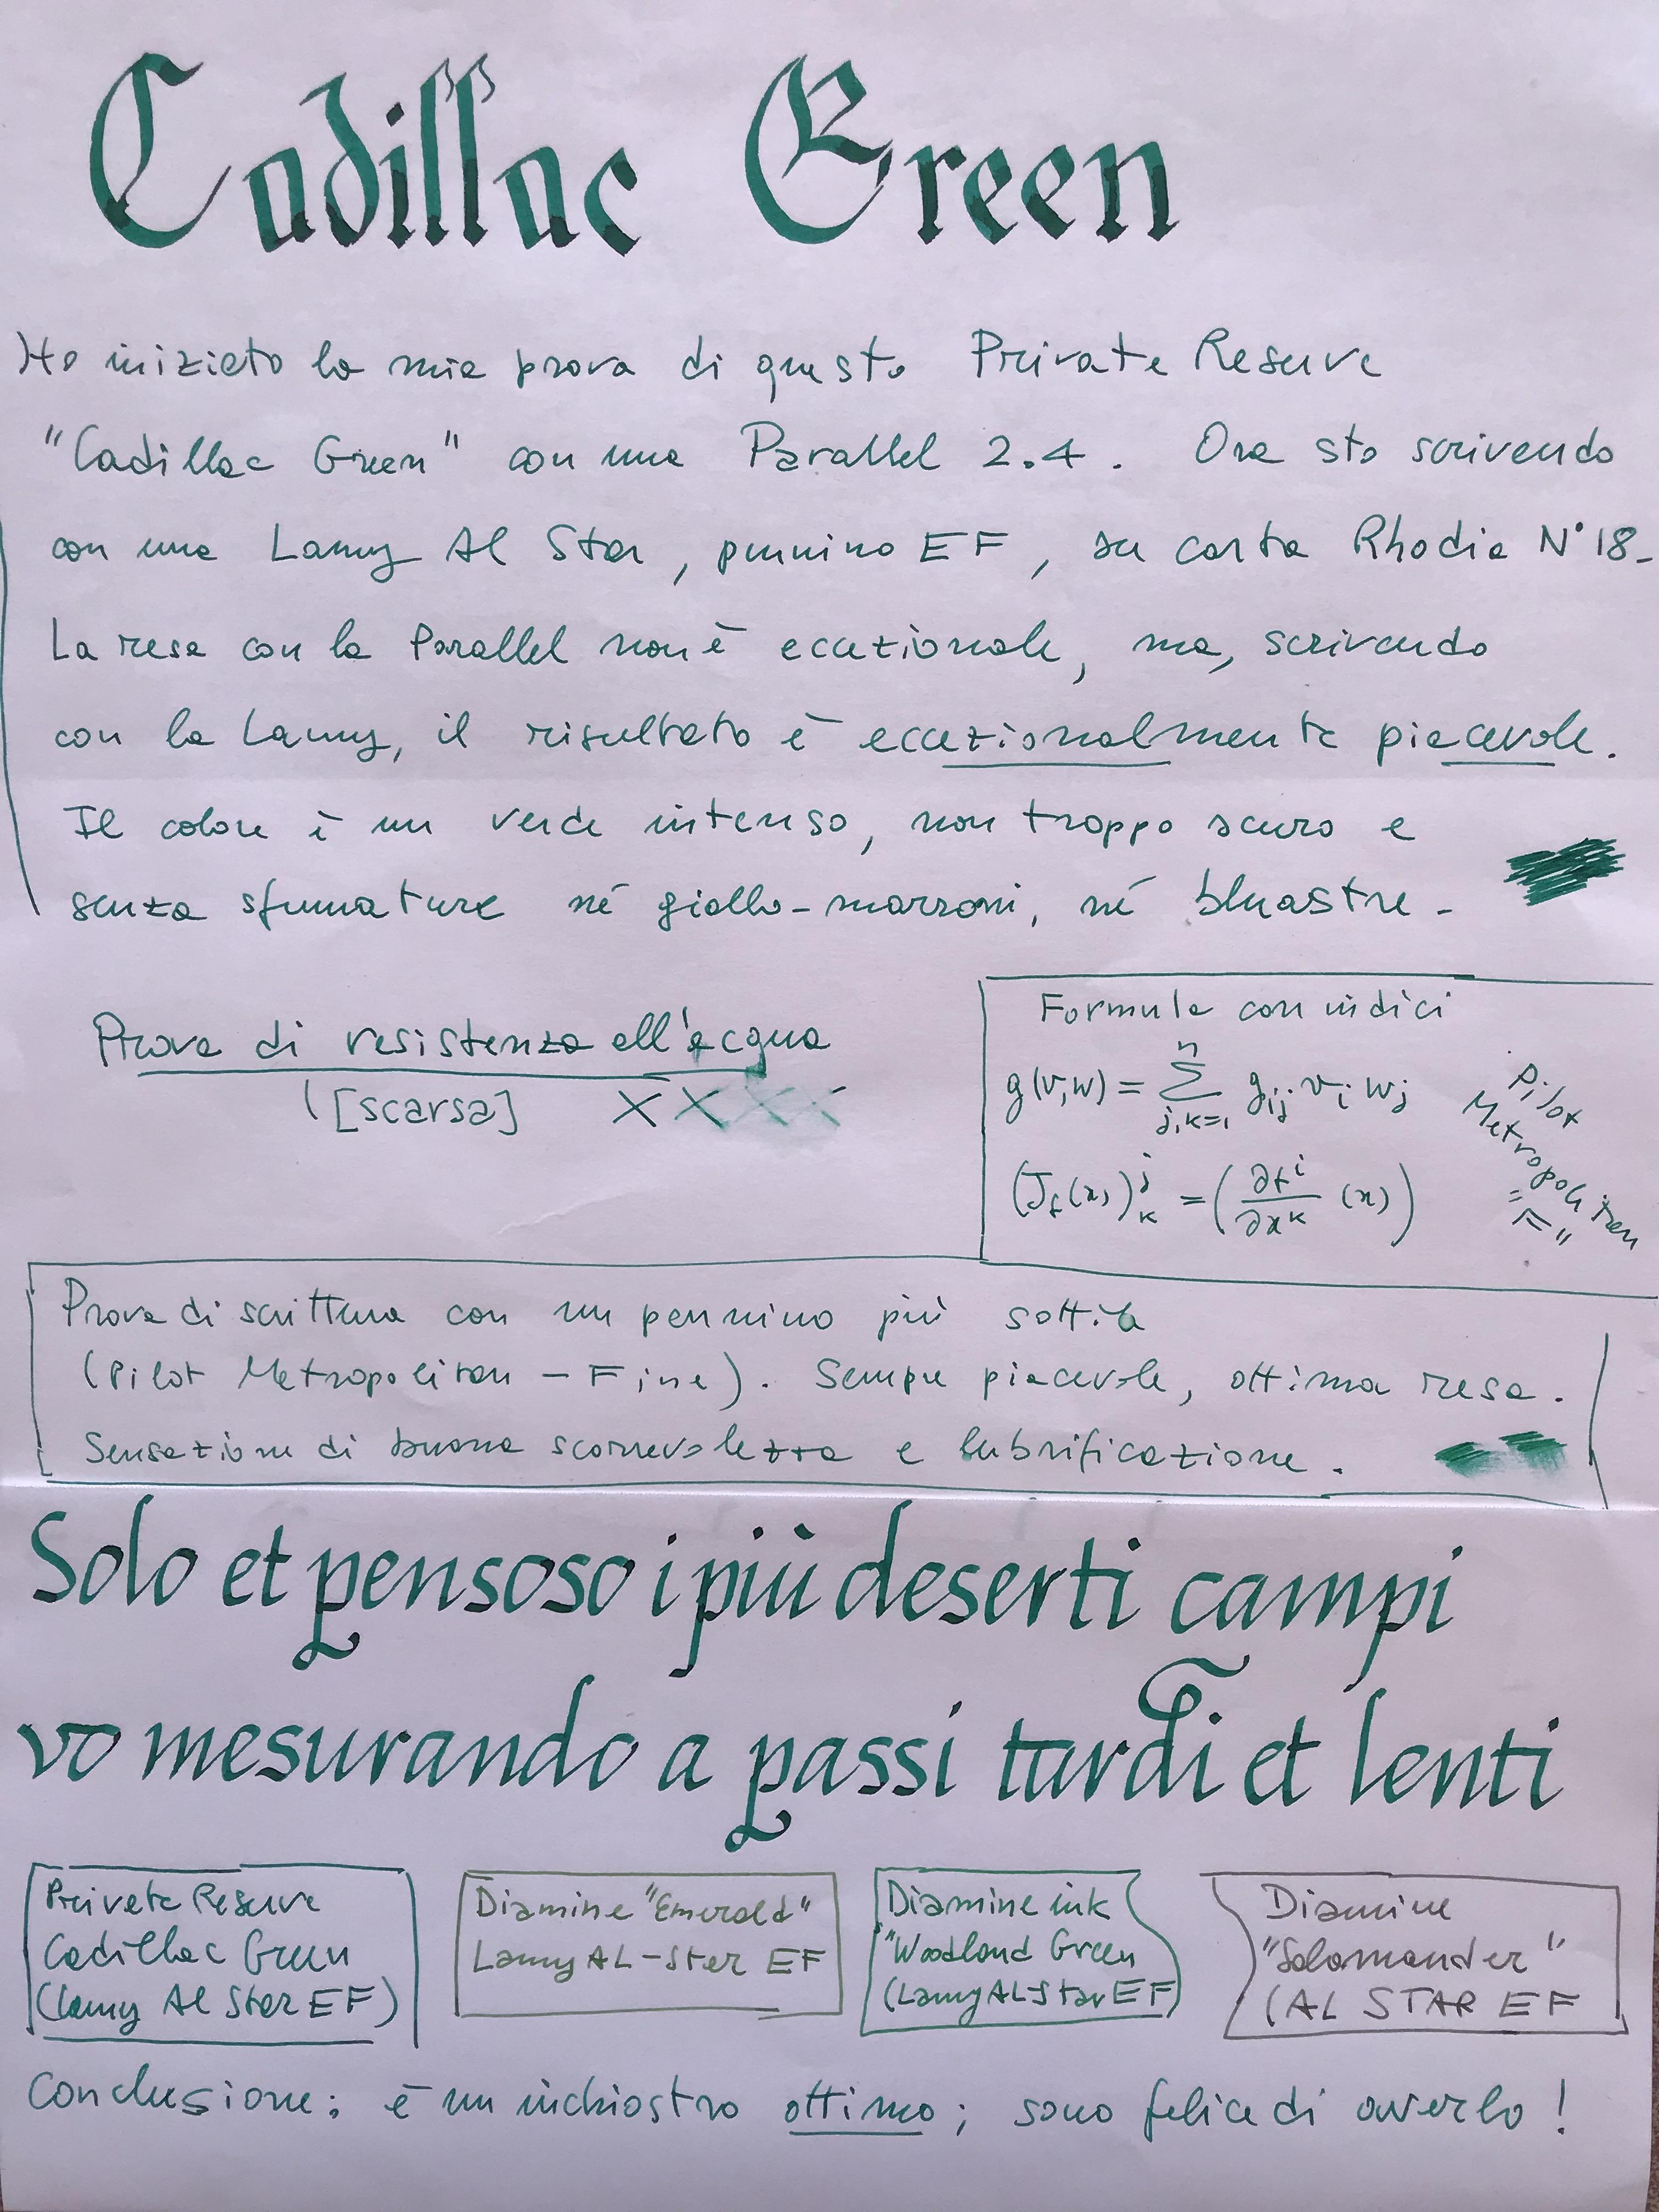 Cadillac Green
Ho iniziato la mia prova di questo Private Reserve
"Cadillac Green" con una Parallel 2.4. Ora sto scrivendo
con una Lamy Al Star, pennino EF, su carta Rhodia N°18-
La resa con la Parallel non è eccezionale, ma, scrivendo
con la Lamy, il risultato è eccezionalmente piacevole.
Il colore è un verde intenso, non troppo scuro e
senza sfumature né giallo-marroni, né bluastre-
Prova di resistenza all'acqua
[scarsa] X X X X
Formule con indici
g(v,w) = ∑ⁿ_{j,k=1} g_{ij} v_i w_j
(J_f(x))^j_k = (∂f^i/∂x^k (x))
Pilot
Metropolitan
"F"
Prova di scrittura con un pennino più sottile
(Pilot Metropolitan - Fine). Sempre piacevole, ottima resa.
Sensazione di buona scorrevolezza e lubrificazione.
Solo et pensoso i più deserti campi
vo mesurando a passi tardi et lenti
Private Reserve
Cadillac Green
(Lamy Al Star EF)
Diamine "Emerald"
Lamy AL-Star EF
Diamine ink
"Woodland Green
(Lamy AL-Star EF)
Diamine
"Salamander"
(AL STAR EF
Conclusione: è un inchiostro ottimo; sono felice di averlo!